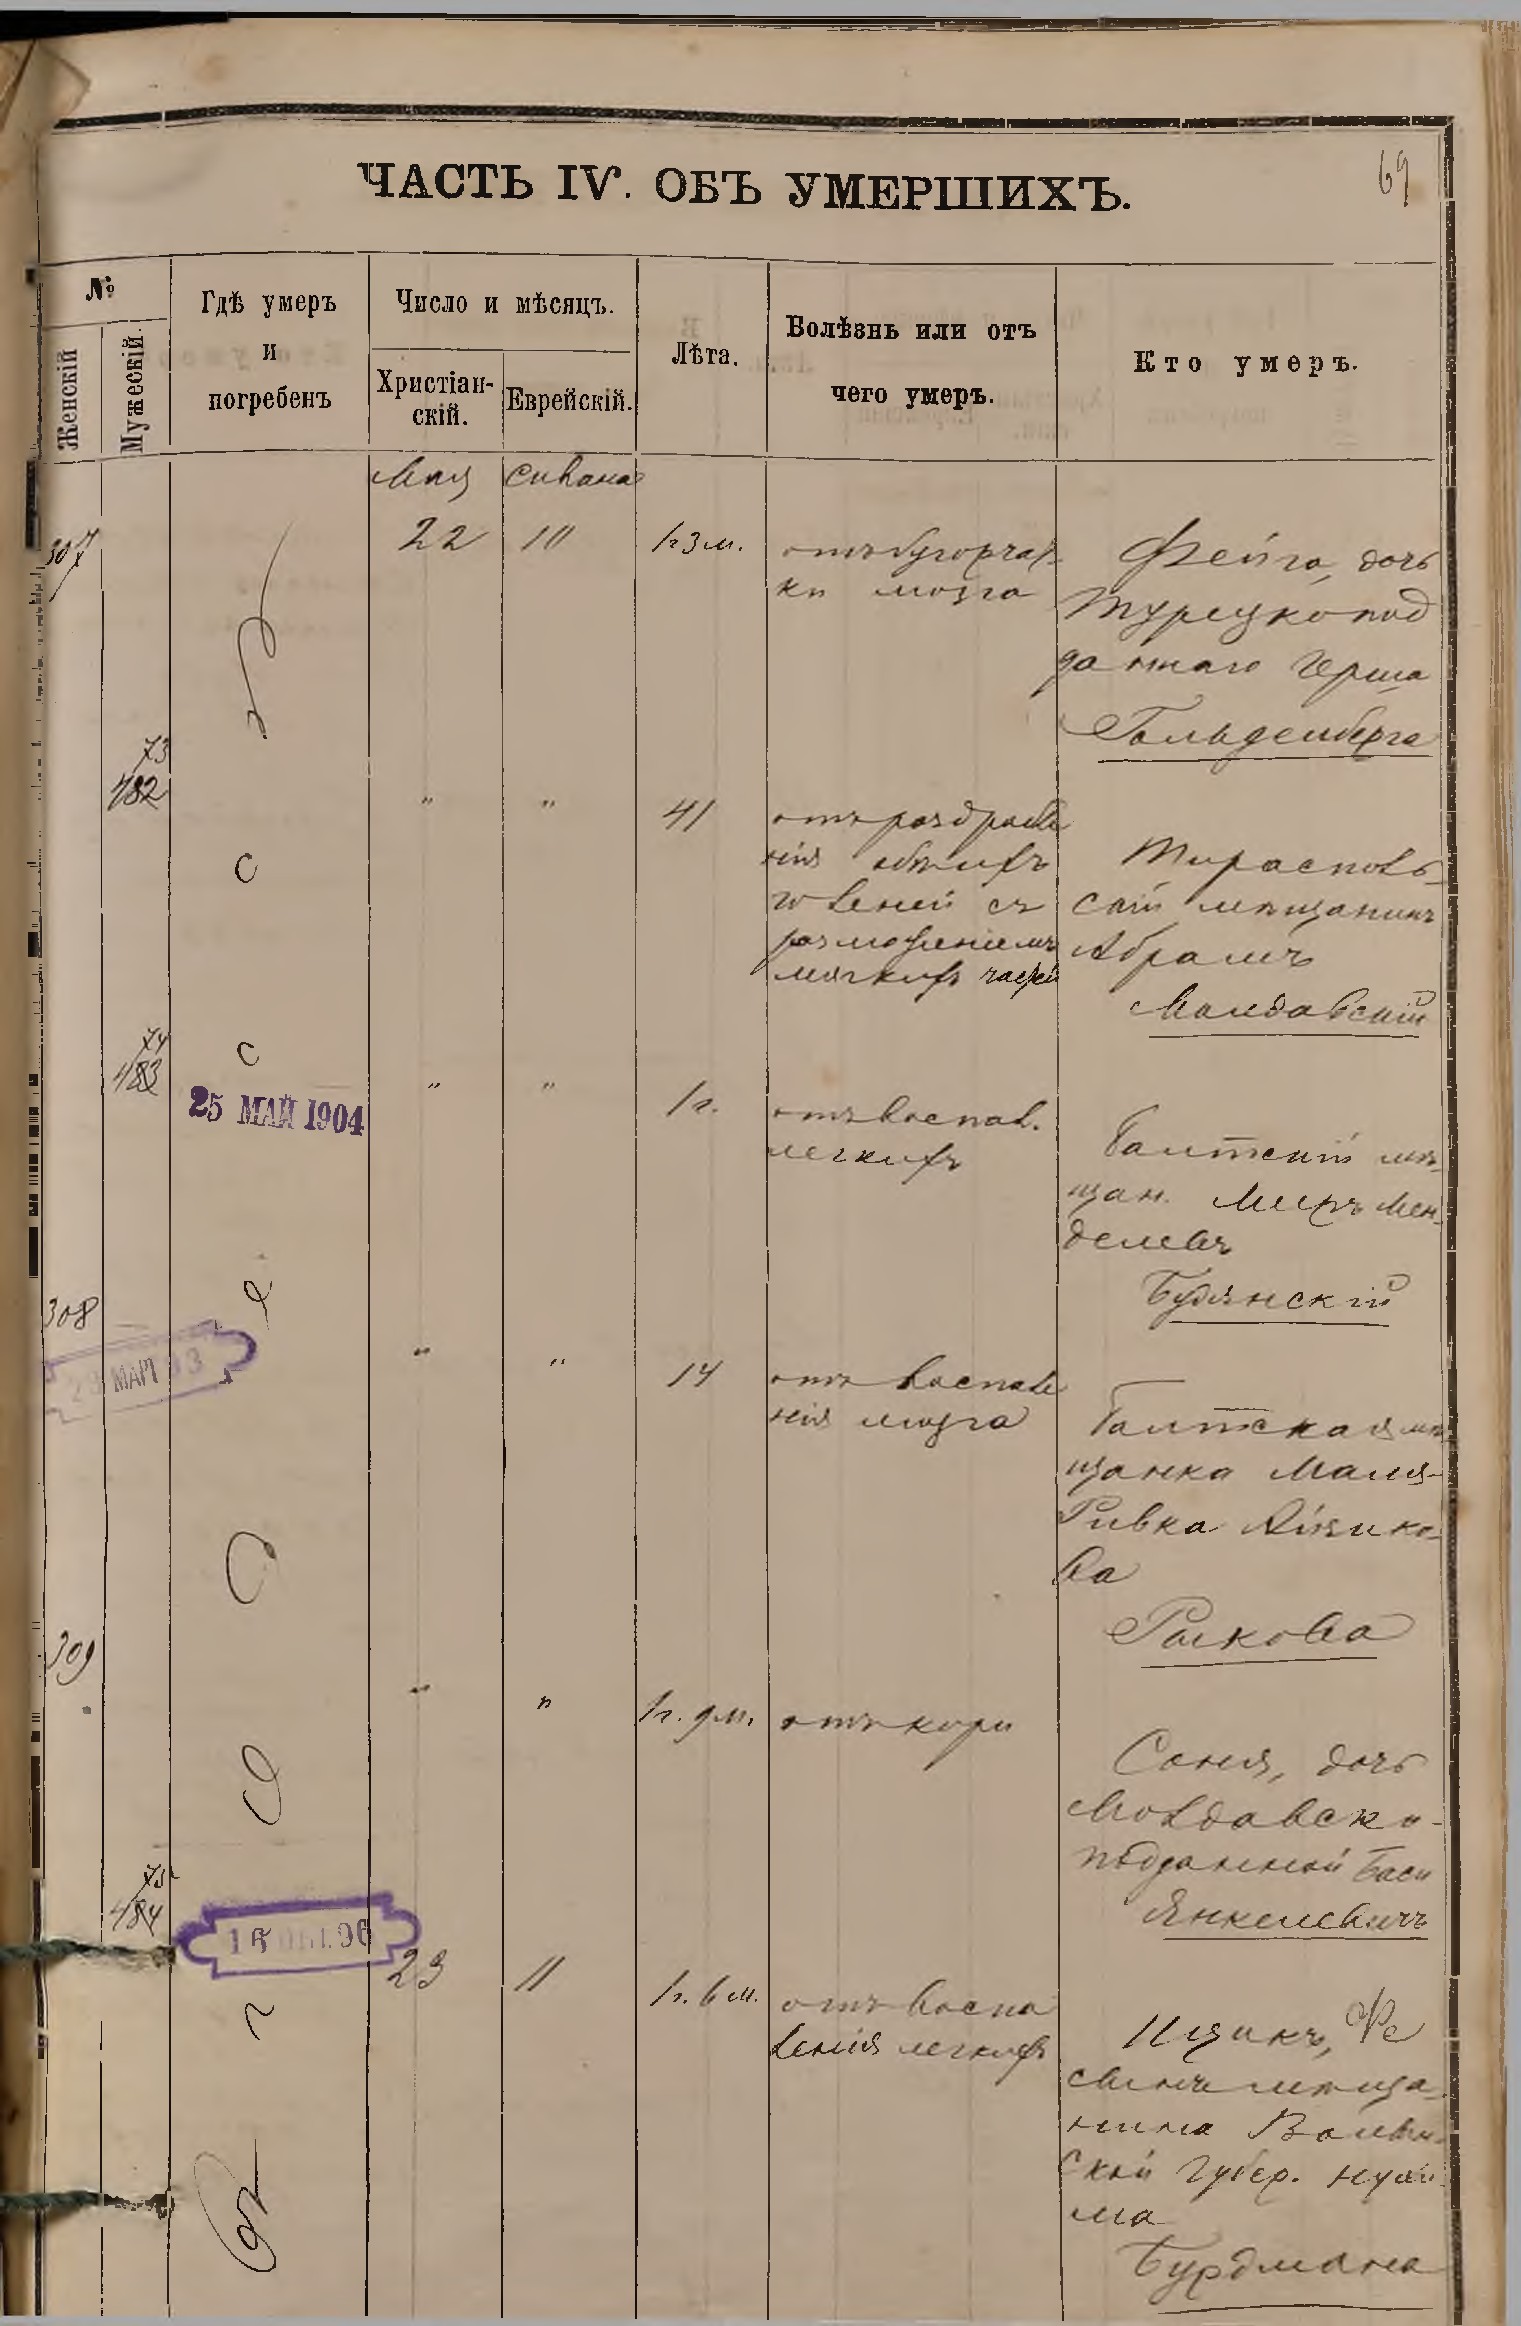 69
ЧАСТЬ IV. ОБЪ УМЕРШИХЪ.
№
Женскій
Мужескій.
Гдѣ умеръ
и
погребенъ
Число и мѣсяцъ.
Христіан-
скій.
Еврейскій.
Лѣта.
Болѣзнь или отъ
чего умеръ.
Кто умеръ.
Мая Сивана
307
22 10 1г 3м.
отъ бугорчат
ки мозга
Фейга, дочь
Турецкопод
даннаго Герша
Гольденберга
73
482
" " 41
отъ раздробле
нія обѣихъ
голеней съ
размозженіемъ
мягкихъ частей
Тирасполь-
скій мѣщанинъ
Абрамъ
Молдавскій
74
483
25 МАЙ 1904
" " 1г.
отъ воспал.
легкихъ
Балтскій мѣ-
щан. Меръ Мен-
делевъ
Будянскій
308
МАЯ
" " 14
отъ воспале
нія мозга
Балтская мѣ
щанка Маля-
Ривка
ва
Рыкова
309
" " 1г. 9м.
отъ кори
Соня, дочь
Молдавско-
подданной Баси
Янкелевичъ
75
484
96
23 11 1г. 6м.
отъ воспа
ленія легкихъ
Ицикъ,
сынъ мѣща-
нина Волын-
ской губер. Нухи-
ма
Бурдмана